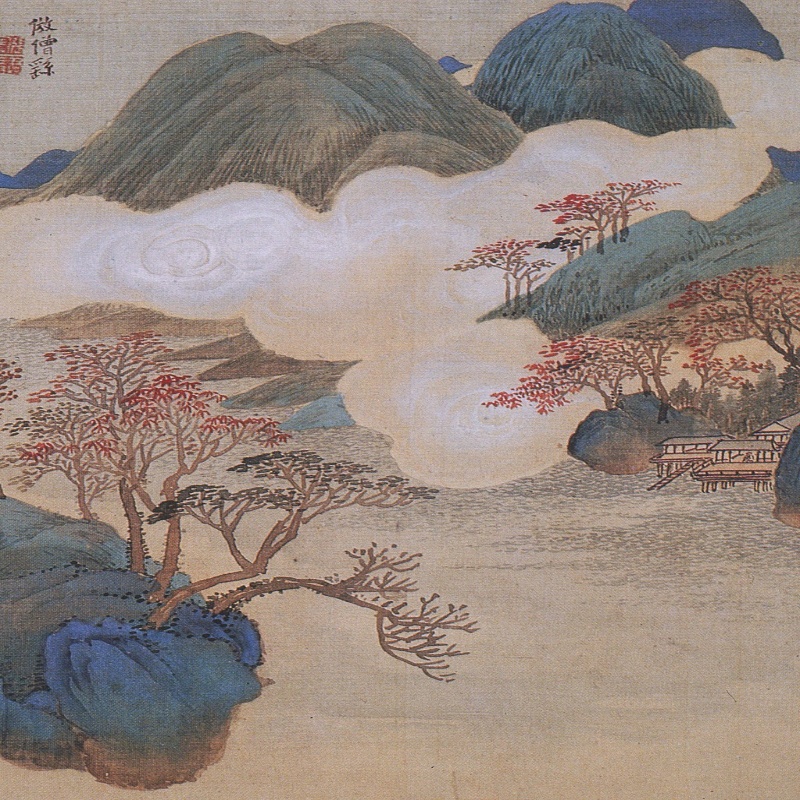 倣僧繇